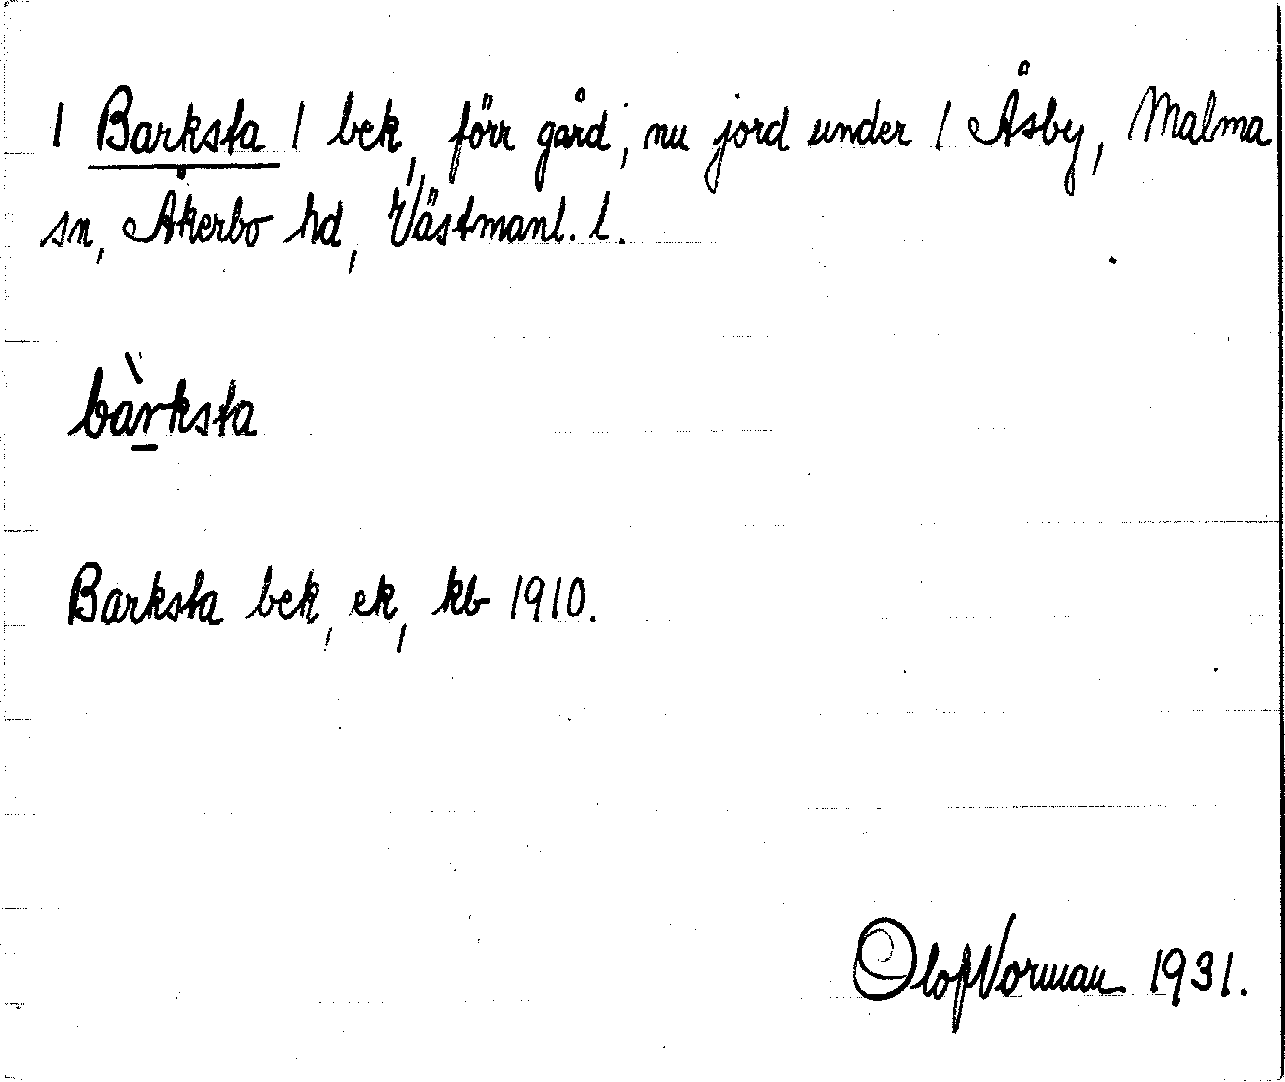 1 Barksta 1 bek, förr gård, nu jord under 1 Åsby, Malma
sn, Åkerbo hd, Västmanl. l.
bàrksta
Barksta bek, ek, kb 1910.
Olof Norman 1931.